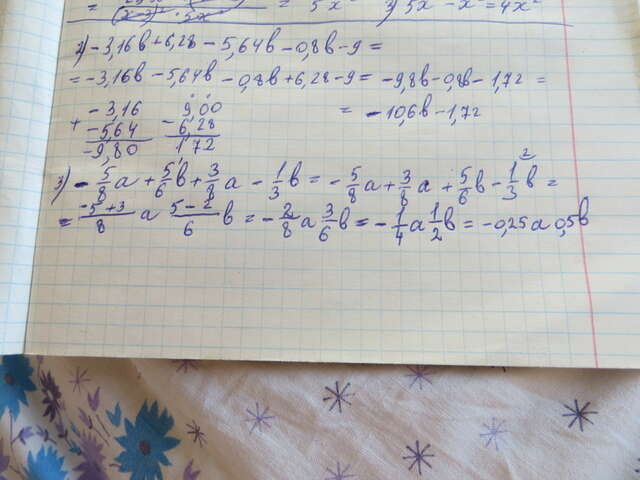 5x 3) 5x - x = 4x
2) -3,16b + 6,28 - 5,64b - 0,8b - 9 =
= -3,16b - 5,64b - 0,8b + 6,28 - 9 = -9,8b - 0,8b - 1,72 =
= -10,6b - 1,72
+ -3,16 - 9,00
-5,64 6,28
-9,80 1,72
3) -5/8 a + 5/6 b + 3/8 a - 1/3 b = -5/8 a + 3/8 a + 5/6 b - 1/3 b =
= -5+3/8 a 5-2/6 b = -2/8 a 3/6 b = -1/4 a 1/2 b = -0,25a 0,5b